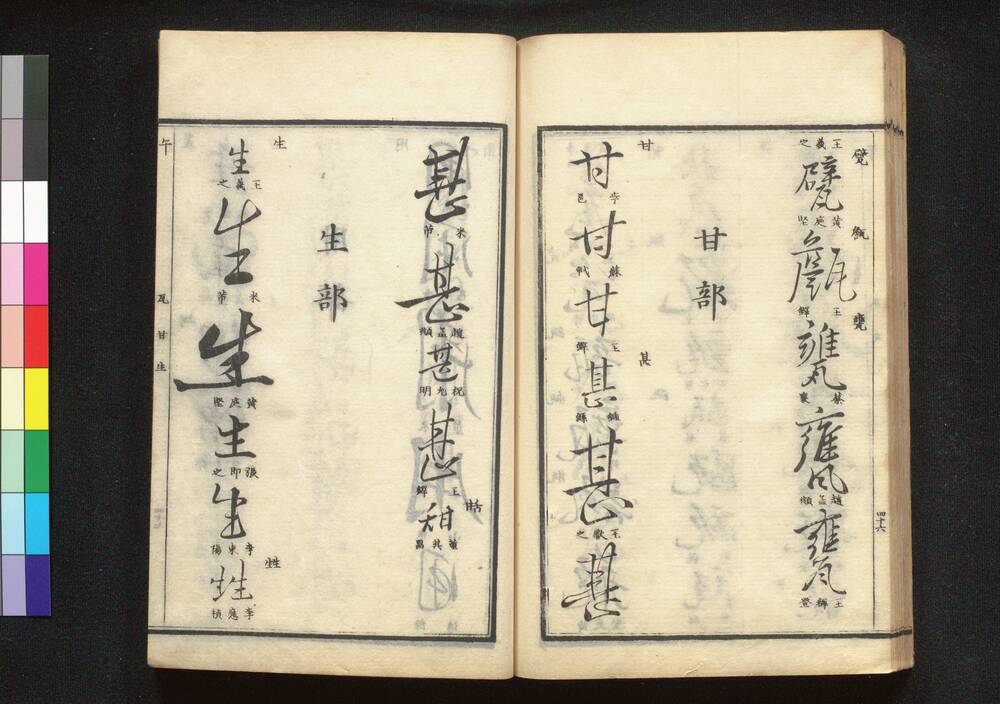 甓
甕
王羲之
甓
黃庭堅
王鐸
甕
蔡襄
甕
趙孟頫
甕
王穉登
四十六
甘部
甘
甚
甘
李邕
甘
蘇軾
甘
王鐸
甚
鍾繇
甚
王獻之
甚
甚
米芾
甚
趙孟頫
甚
祝允明
甚
王鐸
甛
甜
董其昌
生部
生
甡
生
王羲之
生
米芾
生
黃庭堅
生
張即之
生
李東陽
甡
李應禎
瓦甘生